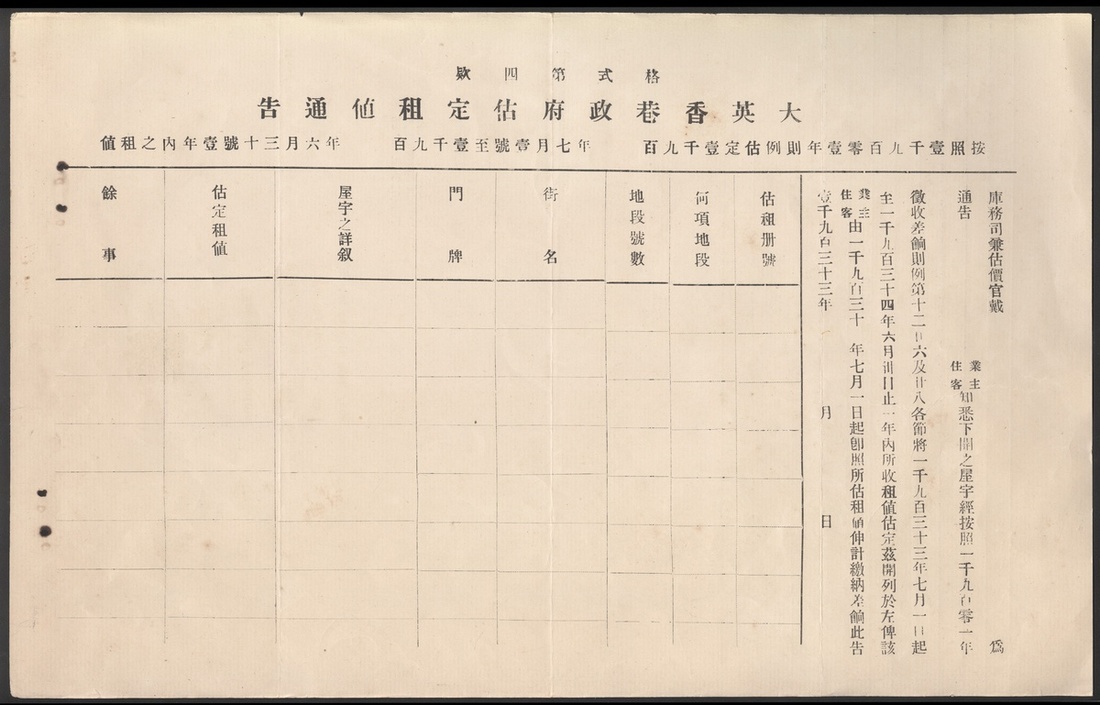 格式第四欵
大英香巷政府估定租值通告
按照壹千九百零壹年則例估定壹千九百　年七月壹號至壹千九百　年六月三十號壹年內之租值
庫務司兼估價官戴　爲
通告　業主住客知悉下開之屋宇經按照一千九百零一年
徵收差餉則例第十二廿六及廿八各節將一千九百三十三年七月一日起
至一千九百三十四年六月卅日止一年內所收租值估定茲開列於左俾該
業主住客由一千九百三十　年七月一日起卽照所估租值伸計繳納差餉此告
壹千九百三十三年　月　日
估租册號
何項地段
地段號數
街名
門牌
屋宇之詳叙
估定租值
餘事